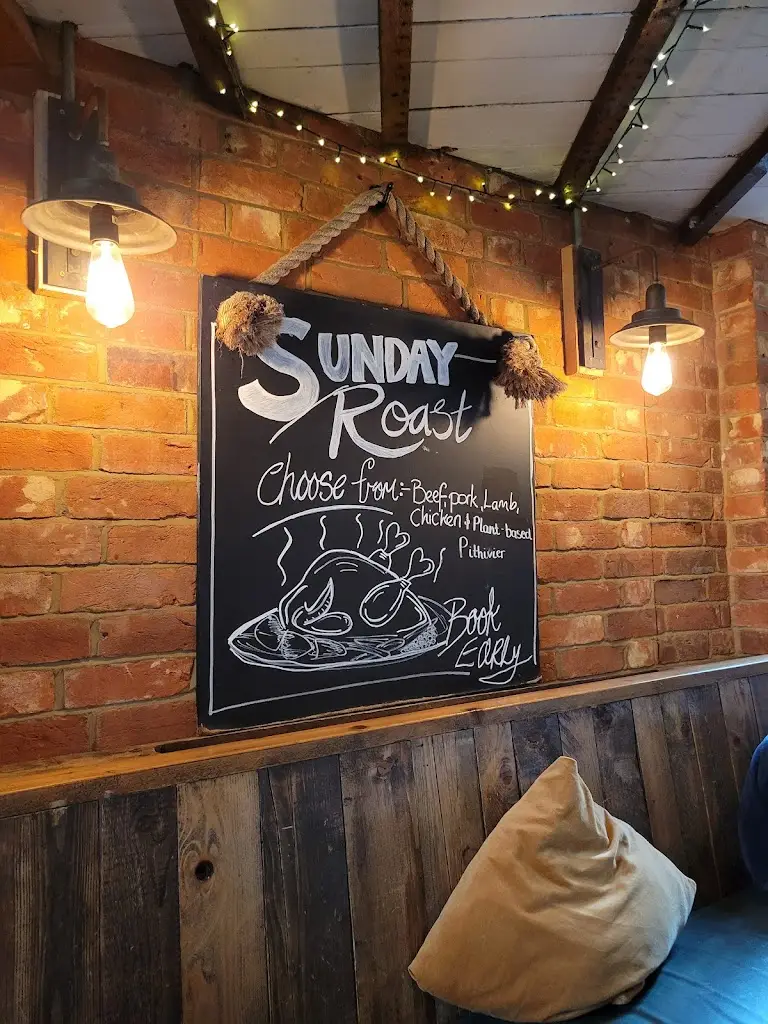 SUNDAY
Roast
Choose from:- Beef, pork, Lamb,
Chicken & Plant-based
Pithivier
Book
Early